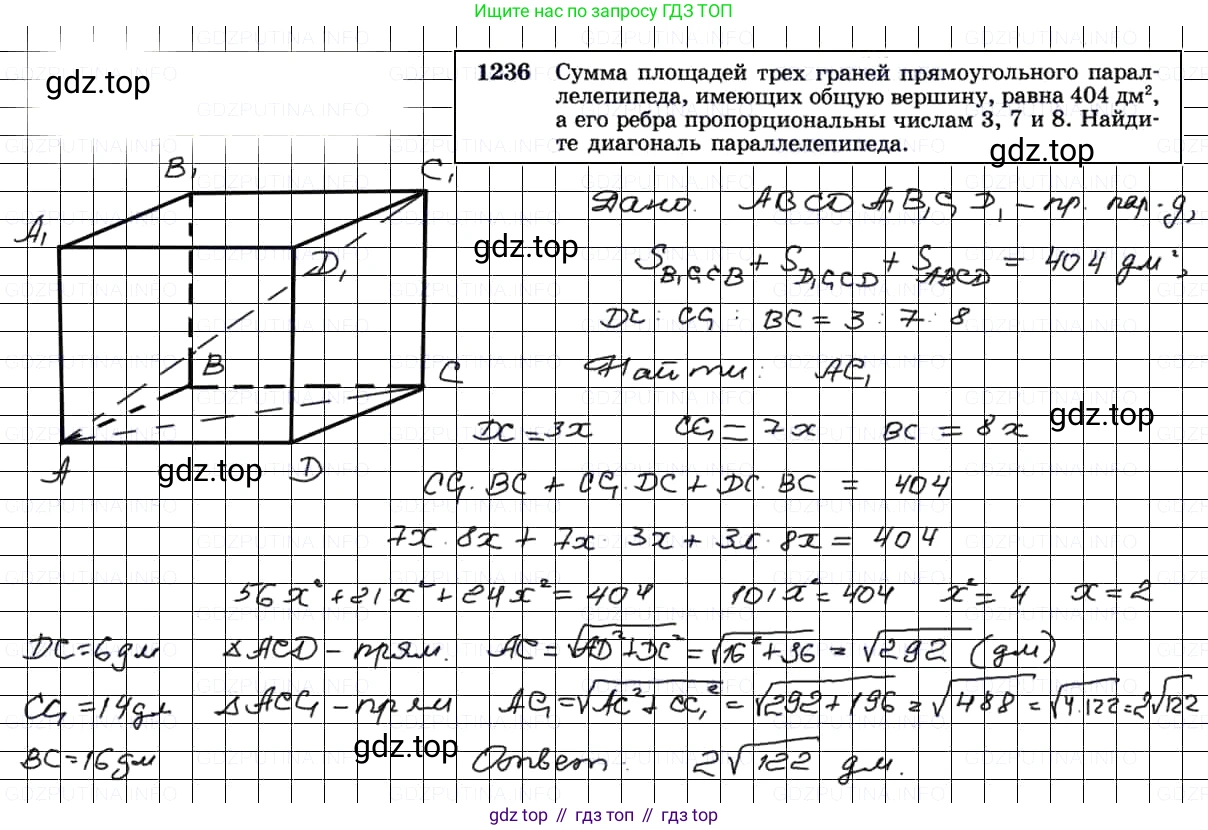 Ищите нас по запросу ГДЗ ТОП
gdz.top
1236 Сумма площадей трех граней прямоугольного парал-
лелепипеда, имеющих общую вершину, равна 404 дм²,
а его ребра пропорциональны числам 3, 7 и 8. Найди-
те диагональ параллелепипеда.
gdz.top
B₁
C₁
A₁
D₁
B
C
A
D
gdz.top
Дано: ABCDA₁B₁C₁D₁ - пр. пар-д,
gdz.top
S_B₁C₁CB + S_D₁C₁CD + S_ABCD = 404 дм²,
DC : CC₁ : BC = 3 : 7 : 8
Найти: AC₁
gdz.top
DC = 3x CC₁ = 7x BC = 8x
CC₁ · BC + CC₁ · DC + DC · BC = 404
7x · 8x + 7x · 3x + 3x · 8x = 404
56x² + 21x² + 24x² = 404 101x² = 404 x² = 4 x = 2
DC = 6 дм △ACD - прям. AC = √AD² + DC² = √16² + 36 = √292 (дм)
CC₁ = 14 дм △ACC₁ - прям AC₁ = √AC² + CC₁² = √292 + 196 = √488 = √4.122 = 2√122
gdz.top
BC = 16 дм Ответ: 2√122 дм.
gdz top // гдз топ // gdz top
GDZPUTINA.INFO